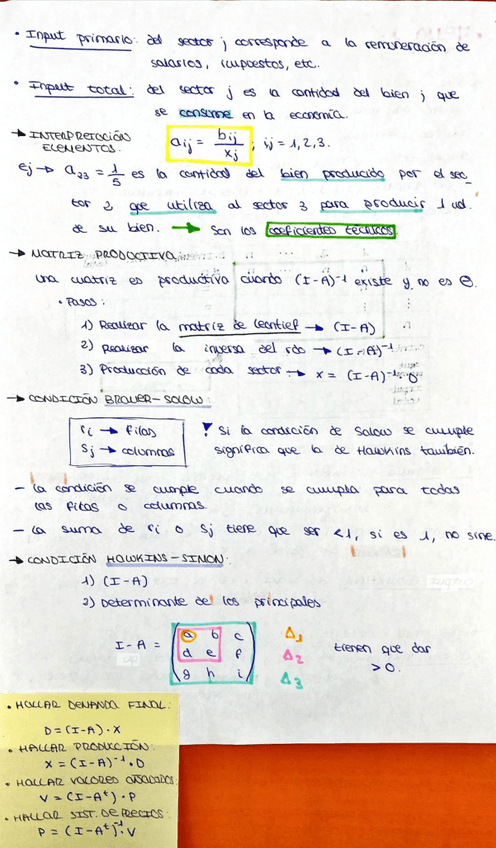 • Input primario: del sector j corresponde a la remuneración de
salarios, impuestos, etc.
• Input total: del sector j es la cantidad del bien j que
se consume en la economía.
→ INTERPRETACIÓN
ELEMENTOS.
aij = bij / xj ; ij = 1, 2, 3.
ej → a23 = 1/5 es la cantidad del bien producido por el sec_
tor 2 que utiliza al sector 3 para producir 1 ud.
de su bien. → Son los coeficientes técnicos
→ MATRIZ PRODUCTIVA
Una matriz es productiva cuando (I-A)⁻¹ existe y no es ⊖.
• Pasos:
1) Realizar la matriz de leontief → (I-A)
2) Realizar la inversa del rdo → (I-A)⁻¹
3) Producción de cada sector → x = (I-A)⁻¹·D
→ CONDICIÓN BRAUER-SOLOW:
ri → filas
Sj → columnas
Si la condición de Solow se cumple
significa que la de Hawkins también.
- La condición se cumple cuando se cumpla para todas
las filas o columnas.
- La suma de ri o Sj tiene que ser <1, si es 1, no sirve.
→ CONDICIÓN HAWKINS-SIMON:
1) (I-A)
2) Determinante de los principales
I-A = ( a b c
d e f
g h i )
Δ1
Δ2
Δ3
tienen que dar
>0.
• HALLAR DEMANDA FINAL:
D=(I-A)·X
• HALLAR PRODUCCIÓN:
X=(I-A)⁻¹·D
• HALLAR VALORES AÑADIDOS:
V=(I-Aᵗ)·P
• HALLAR SIST. DE PRECIOS:
P=(I-Aᵗ)⁻¹·V